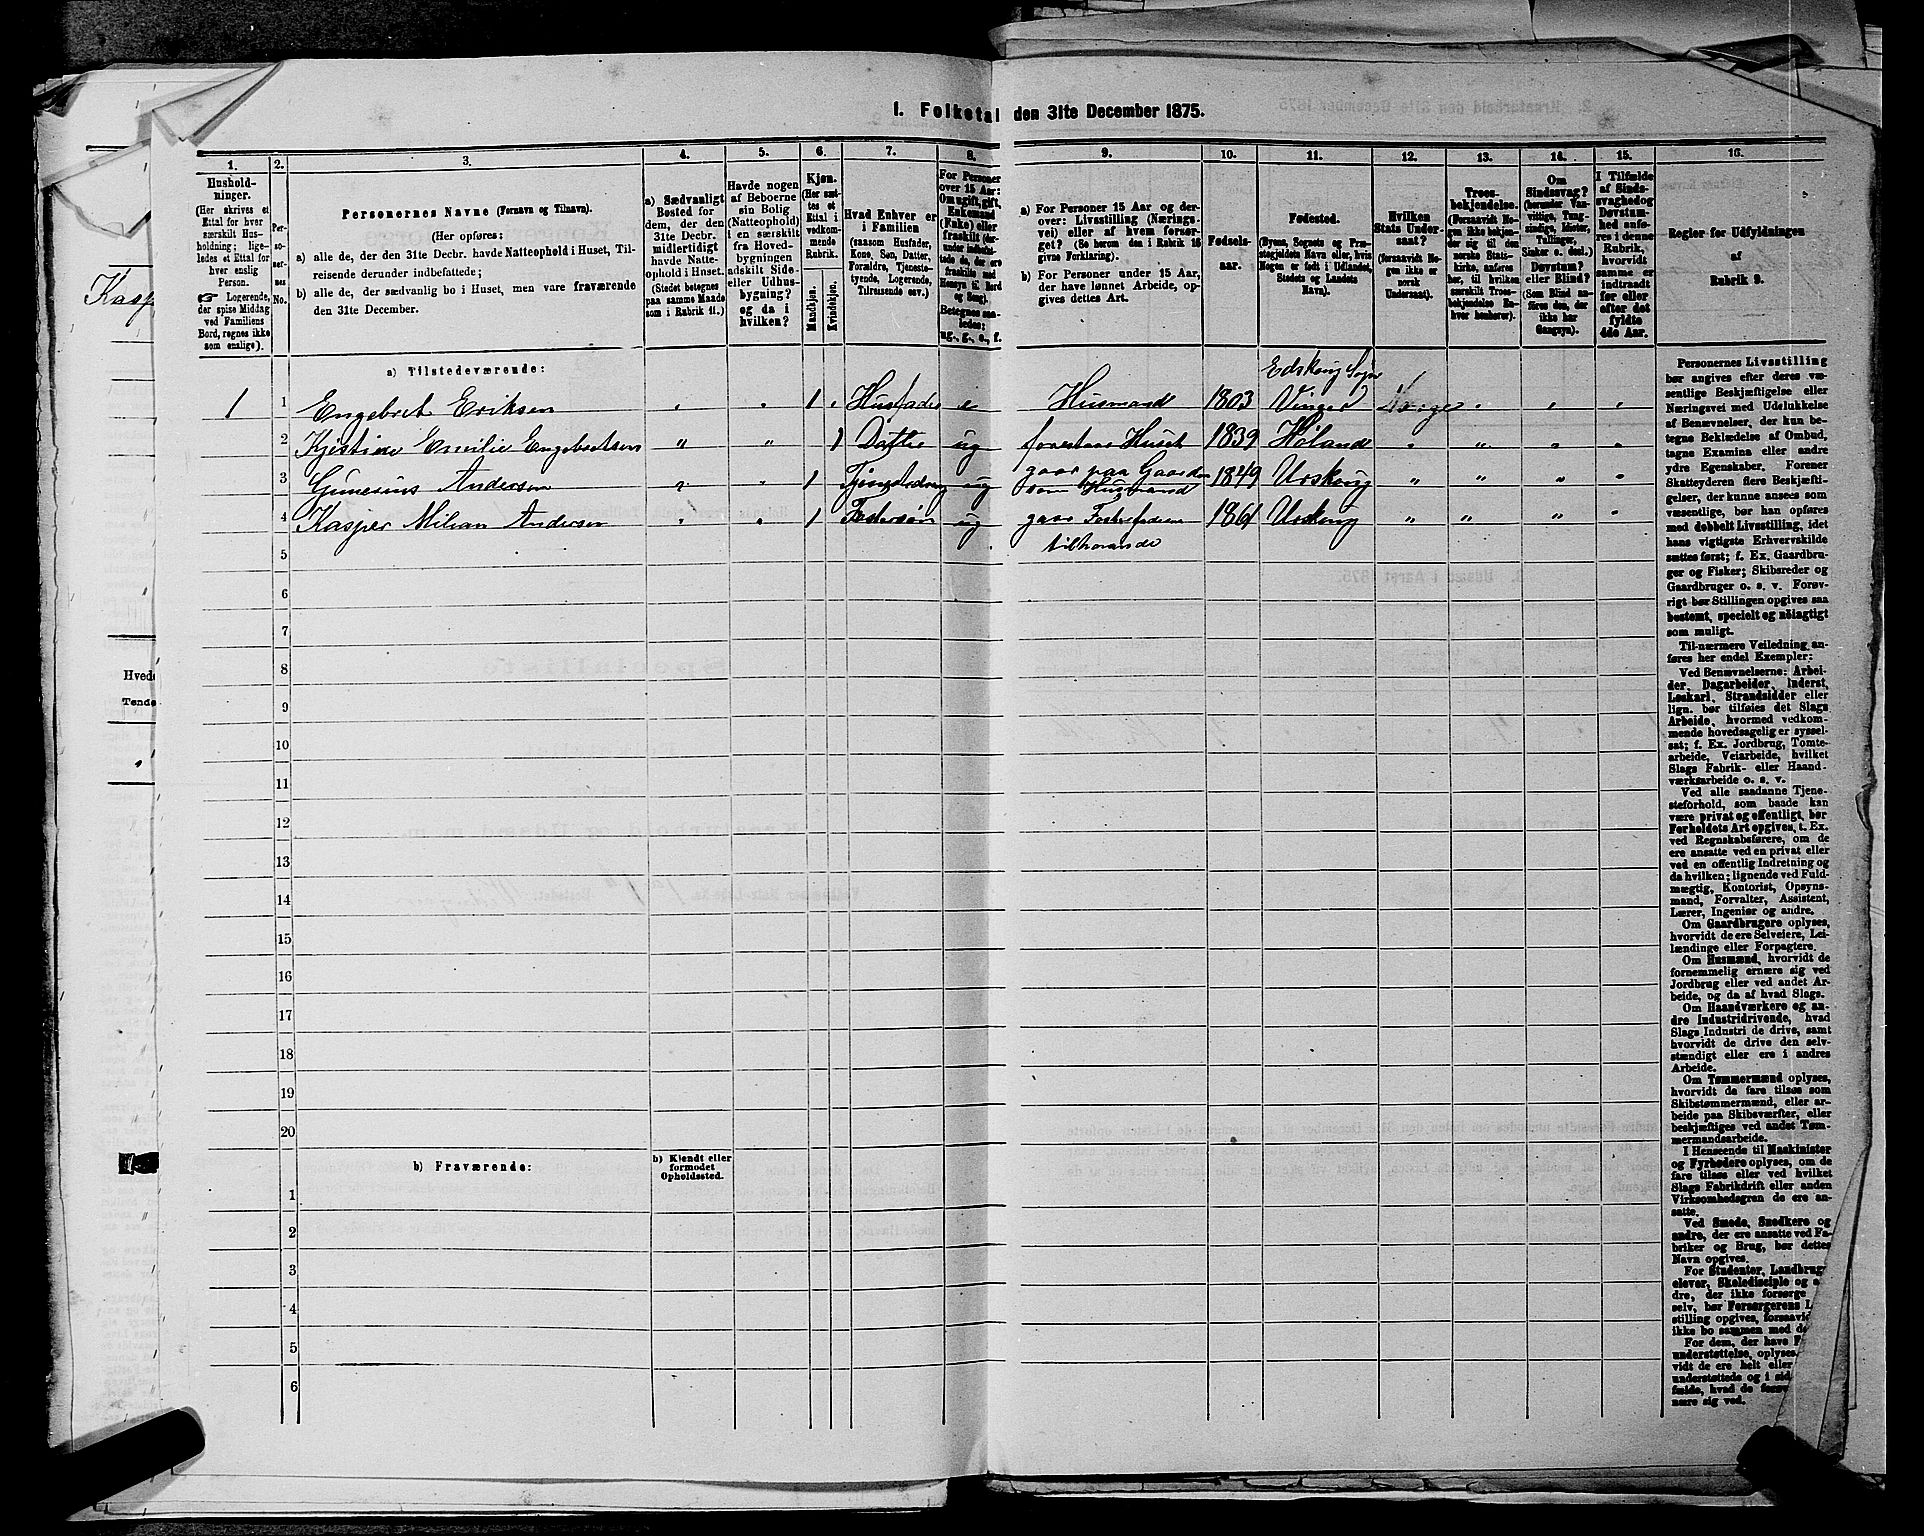 I. Folketal den 31te December 1875.
1. 2. 3. 4. 5. 6. 7. 8. 9. 10. 11. 12. 13. 14. 15. 16.
Hushold-
ninger.
(Her skrives et
Ettal for hver
særskilt Hus-
holdning; lige-
ledes et Ettal for
hver enslig
Person.
☞ Logerende,
der spise Middag
ved Familiens
Bord, regnes ikke
som enslige).
Per-
so-
ner-
nes
No.
Personernes Navne (Fornavn og Tilnavn).
(Her opføres:
a) alle de, der den 31te Decbr. havde Natteophold i Huset, Til-
reisende derunder indbefattede;
b) alle de, der sædvanlig bo i Huset, men vare fraværende
den 31te December.
a) Sædvanligt
Bosted for
dem, der den
31te Decbr.
midlertidigt
havde Natte-
ophold i Huset.
(Stedet betegnes
paa samme Maade
som i Rubrik 11.)
Havde nogen
af Beboerne
sin Bolig
(Natteophold)
i en særskilt
fra Hoved-
bygningen
adskilt Side-
eller Udhus-
bygning?
og da i
hvilken?
Kjøn.
(Her sæt-
tes et
Ettal i
vedkom-
mende
Rubrik.
Mandkjøn.
Kvindekjøn.
Hvad Enhver er
i Familien
(saasom Husfader,
Kone, Søn, Datter,
Forældre, Tjeneste-
tyende, Logerende,
Tilreisende osv.)
For Personer
over 15 Aar:
Om ugift, gift,
Enkemand
(Enke) eller
fraskilt
Betegnes saa-
ledes:
ug., g., e., f.
a) For Personer 15 Aar og der-
over: Livsstilling (Nærings-
vei) eller af hvem forsør-
get? (Se herom den i Rubrik 16
givne Forklaring).
b) For Personer under 15 Aar,
der have lønnet Arbeide, op-
gives dettes Art.
Fødsels-
aar.
Fødested.
(Byens, Sognets og Præ-
stegjeldets Navn eller, hvis
Nogen er født i Udlandet,
Stedets og Landets
Navn).
Hvilken
Stats Under-
saat?
(forsaavidt No-
gen ikke er
norsk
Undersaat).
Troes-
bekjendelse.
(Forsaavidt No-
gen ikke bekjen-
der sig til den
norske Stats-
kirke, anføres
her, til hvilken
særskilt Troes-
bekjendelse En-
hver henhører).
Om
Sindssvag?
(herunder Van-
vittige, Tung-
sindige, Idioter,
Tullinger,
Sinker o. desl.)
Døvstum?
eller Blind?
(Som Blind an-
føres den, der
ikke har
Gangsyn).
I Tilfælde
af Sinds-
svaghed og
Døvstum-
hed anfø-
res i denne
Rubrik,
hvorvidt
samme er
indtraadt
før eller
efter det
fyldte
4de Aar.
Regler for Udfyldningen
af
Rubrik 9.
Kasp
a) Tilstedeværende:
Edskoug Sogn
1 1 Engebret Eriksen " " 1 " Husfader e Husmand 1803 Vinger Norge " " "
2 Kjestine Emilie Engebretsen " " 1 Datter ug forestaar Huset 1839 Høland " " " "
gaar paa Gaarden
3 Gunerius Andersen " " 1 ug som Husmand 1849 Urskoug " " " "
4 Kasper Milian Andersen " " 1 Fostersøn ug gaar Fosterfaderen 1861 Urskoug " " " "
5 tilhaande
6
7
8
9
10
11
12
13
14
15
16
17
18
19
20
b) Fraværende:
b) Kjendt eller
formodet
Opholdssted.
1
2
3
4
5
6
Hvede
Tønde
Personernes Livsstilling
bør angives efter deres væ-
sentlige Beskjæftigelse eller
Næringsvei med Udelukkelse
af Benævnelser, der kun be-
tegne Beklædelse af Ombud,
tagne Examina eller andre
ydre Egenskaber. Forener
Skatteyderen flere Beskjæfti-
gelser, der kunne ansees som
væsentlige, bør han opføres
med dobbelt Livsstilling, idet
hans vigtigste Erhvervskilde
sættes først; f. Ex. Gaardbru-
ger og Fisker; Skibsreder og
Gaardbruger o. s. v. Forøv-
rigt bør Stillingen opgives saa
bestemt, specielt og nøiagtigt
som muligt.
Til nærmere Veiledning an-
føres her endel Exempler:
Ved Benævnelserne: Arbei-
der, Dagarbeider, Inderst,
Løskarl, Strandsidder eller
lign. bør tilføies det Slags
Arbeide, hvormed vedkom-
mende hovedsagelig er syssel-
sat; f. Ex. Jordbrug, Tomte-
arbeide, Veiarbeide, hvilket
Slags Fabrik- eller Haand-
værksarbeide o. s. v.
Ved alle saadanne Tjene-
steforhold, som baade kan
være privat og offentligt, bør
Forholdets Art opgives, t. Ex.
ved Regnskabsførere, om de
ere ansatte ved en privat eller
ved en offentlig Indretning og
da hvilken; lignende ved Fuld-
mægtig, Kontorist, Opsyns-
mand, Forvalter, Assistent,
Lærer, Ingeniør og andre.
Om Gaardbrugere oplyses,
hvorvidt de ere Selveiere, Lei-
lændinge eller Forpagtere.
Om Husmænd, hvorvidt de
fornemmelig ernære sig ved
Jordbrug eller ved andet Ar-
beide, og da af hvad Slags.
Om Haandværkere og an-
dre Industridrivende, hvad
Slags Industri de drive, samt
hvorvidt de drive den selv-
stændigt eller ere i andres
Arbeide.
Om Tømmermænd oplyses,
hvorvidt de fare tilsøs som
Skibstømmermænd, eller ar-
beide paa Skibsværfter, eller
beskjæftiges ved andet Tøm-
mermandsarbeide.
I Henseende til Maskinister
og Fyrbødere oplyses, om de
fare tilsøs eller ved hvilket
Slags Fabrikdrift eller anden
Virksomhedsgren de ere an-
satte.
Ved Smede, Snedkere og
andre, der ere ansatte ved Fa-
briker og Brug, bør dettes
Navn opgives.
For Studenter, Landbrugs-
elever, Skoledisciple og
dre, der ikke forsørge
selv, bør Forsørgerens
stilling opgives, forsaavid
ikke bo sammen med d
For dem, der have
understøttelse, oplyses
vidt de ere helt eller
understøttede og i
fælde, hvad de
nære sig ved.